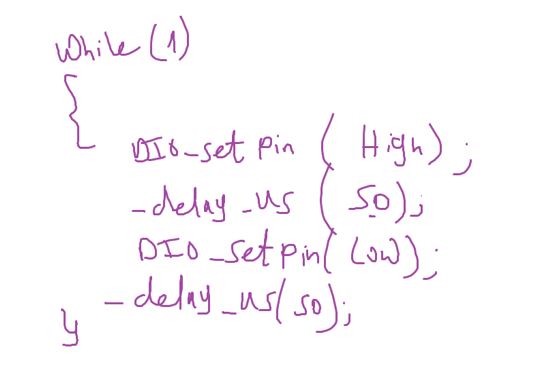 while (1)
{
DIO_set pin ( High) ;
_delay_us ( 50);
DIO_set pin( Low);
_delay_us(50);
}